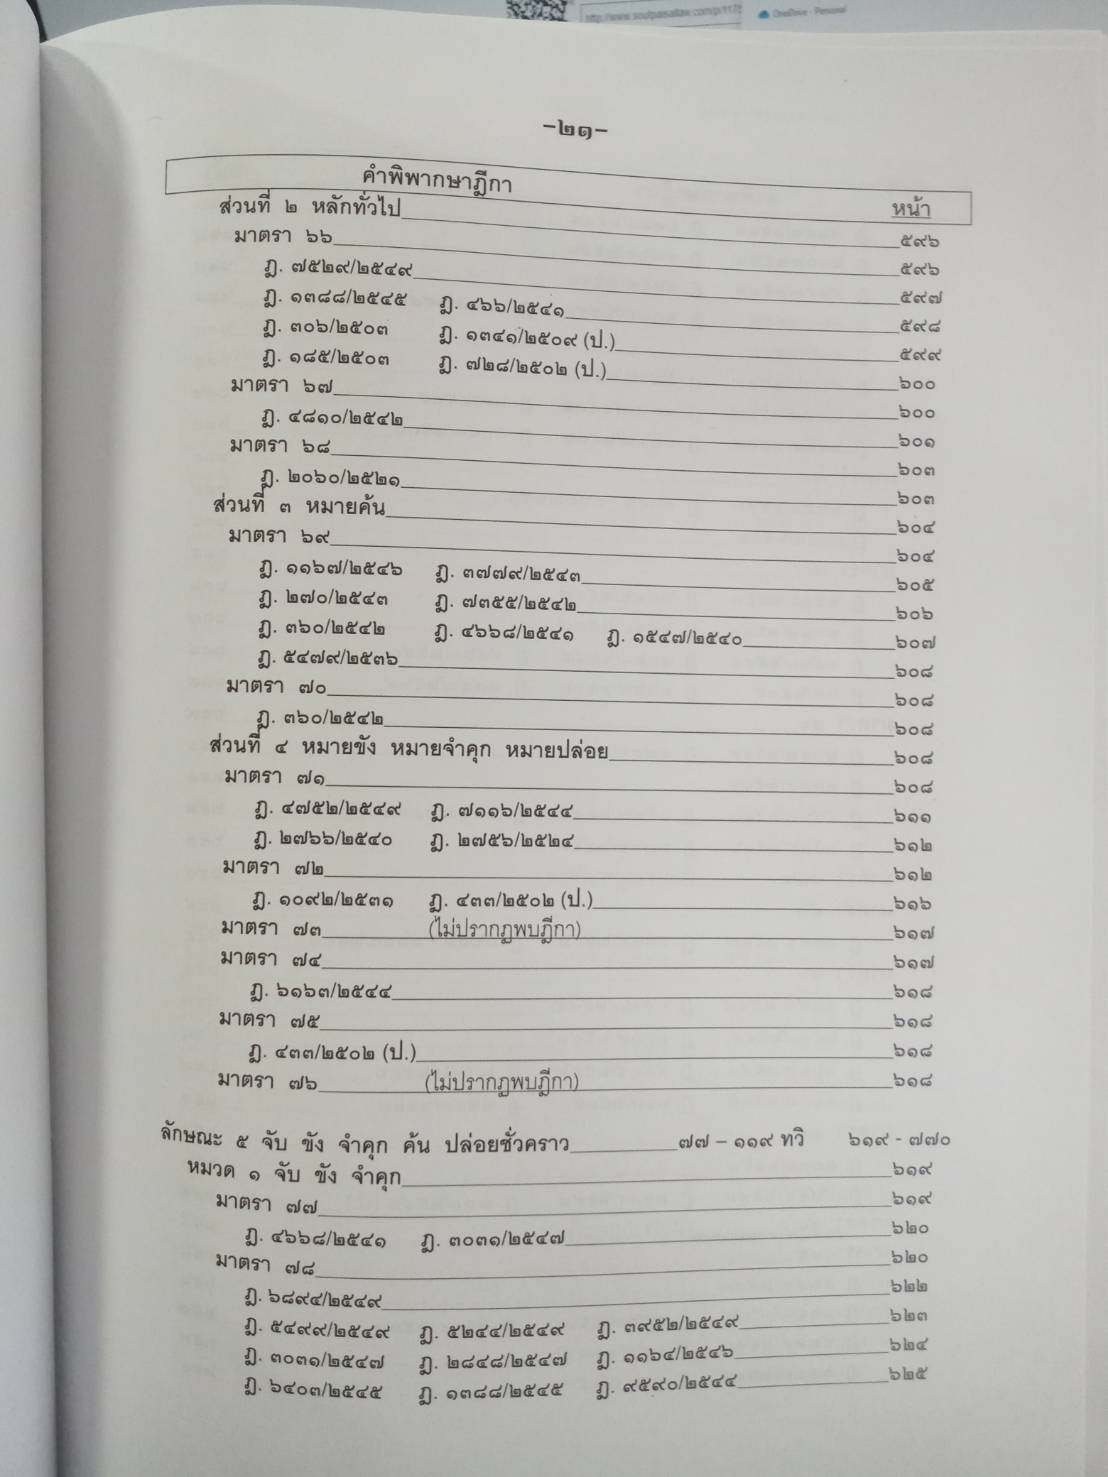 http://www.soutpaisallaw.com/p/117 OneDrive - Personal
-๒๑-
คำพิพากษาฎีกา หน้า
ส่วนที่ ๒ หลักทั่วไป ๕๙๖
มาตรา ๖๖ ๕๙๖
ฎ. ๗๕๒๙/๒๕๔๙ ๕๙๗
ฎ. ๑๓๘๘/๒๕๔๕ ฎ. ๔๖๖/๒๕๔๑ ๕๙๘
ฎ. ๓๐๖/๒๕๐๓ ฎ. ๑๓๔๑/๒๕๐๙ (ป.) ๕๙๙
ฎ. ๑๘๕/๒๕๐๓ ฎ. ๗๒๘/๒๕๐๒ (ป.) ๖๐๐
มาตรา ๖๗ ๖๐๐
ฎ. ๔๘๑๐/๒๕๔๒ ๖๐๑
มาตรา ๖๘ ๖๐๓
ฎ. ๒๐๖๐/๒๕๒๑ ๖๐๓
ส่วนที่ ๓ หมายค้น ๖๐๔
มาตรา ๖๙ ๖๐๔
ฎ. ๑๑๖๗/๒๕๔๖ ฎ. ๓๗๗๙/๒๕๔๓ ๖๐๕
ฎ. ๒๗๐/๒๕๔๓ ฎ. ๗๓๕๕/๒๕๔๒ ๖๐๖
ฎ. ๓๖๐/๒๕๔๒ ฎ. ๔๖๖๘/๒๕๔๑ ฎ. ๑๕๔๗/๒๕๔๐ ๖๐๗
ฎ. ๕๔๗๙/๒๕๓๖ ๖๐๘
มาตรา ๗๐ ๖๐๘
ฎ. ๓๖๐/๒๕๔๒ ๖๐๘
ส่วนที่ ๔ หมายขัง หมายจำคุก หมายปล่อย ๖๐๘
มาตรา ๗๑ ๖๐๘
ฎ. ๔๗๕๒/๒๕๔๙ ฎ. ๗๑๑๖/๒๕๔๔ ๖๑๑
ฎ. ๒๗๖๖/๒๕๔๐ ฎ. ๒๗๕๖/๒๕๒๔ ๖๑๒
มาตรา ๗๒ ๖๑๒
ฎ. ๑๐๙๒/๒๕๓๑ ฎ. ๔๓๓/๒๕๐๒ (ป.) ๖๑๖
มาตรา ๗๓ (ไม่ปรากฏพบฎีกา) ๖๑๗
มาตรา ๗๔ ๖๑๗
ฎ. ๖๑๖๓/๒๕๔๔ ๖๑๘
มาตรา ๗๕ ๖๑๘
ฎ. ๔๓๓/๒๕๐๒ (ป.) ๖๑๘
มาตรา ๗๖ (ไม่ปรากฏพบฎีกา) ๖๑๘
ลักษณะ ๕ จับ ขัง จำคุก ค้น ปล่อยชั่วคราว ๗๗ – ๑๑๙ ทวิ ๖๑๙ - ๗๗๐
หมวด ๑ จับ ขัง จำคุก ๖๑๙
มาตรา ๗๗ ๖๑๙
ฎ. ๔๖๖๘/๒๕๔๑ ฎ. ๓๐๓๑/๒๕๔๗ ๖๒๐
มาตรา ๗๘ ๖๒๐
ฎ. ๖๘๙๔/๒๕๔๙ ๖๒๒
ฎ. ๕๔๙๙/๒๕๔๙ ฎ. ๕๒๔๔/๒๕๔๙ ฎ. ๓๙๕๒/๒๕๔๙ ๖๒๓
ฎ. ๓๐๓๑/๒๕๔๗ ฎ. ๒๘๔๘/๒๕๔๗ ฎ. ๑๑๖๔/๒๕๔๖ ๖๒๔
ฎ. ๖๔๐๓/๒๕๔๕ ฎ. ๑๓๘๘/๒๕๔๕ ฎ. ๙๕๙๐/๒๕๔๔ ๖๒๕